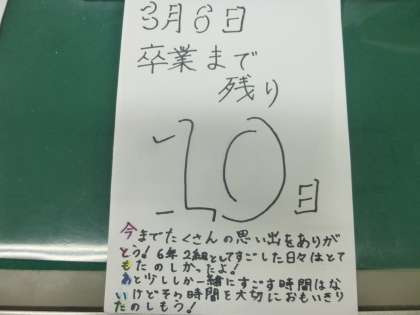 3月6日
卒業まで
残り
10日
今までたくさんの思い出をありが
とう!6年2組としてすごした日々はとて
もたのしかったよ!
あと少ししか一緒にすごす時間はな
いけどその時間を大切におもいきり
たのしもう!